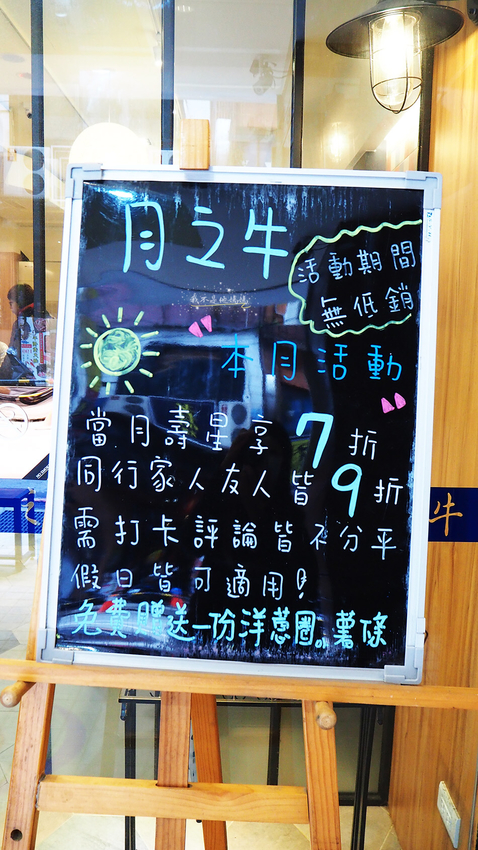 月之牛
活動期間
無低銷
本月活動
當月壽星享7折
同行家人友人皆9折
需打卡評論皆不分平
假日皆可適用!
免費贈送一份洋蔥圈。薯條
牛